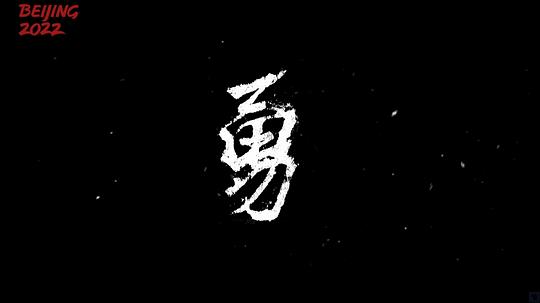 BEIJING
2022
勇